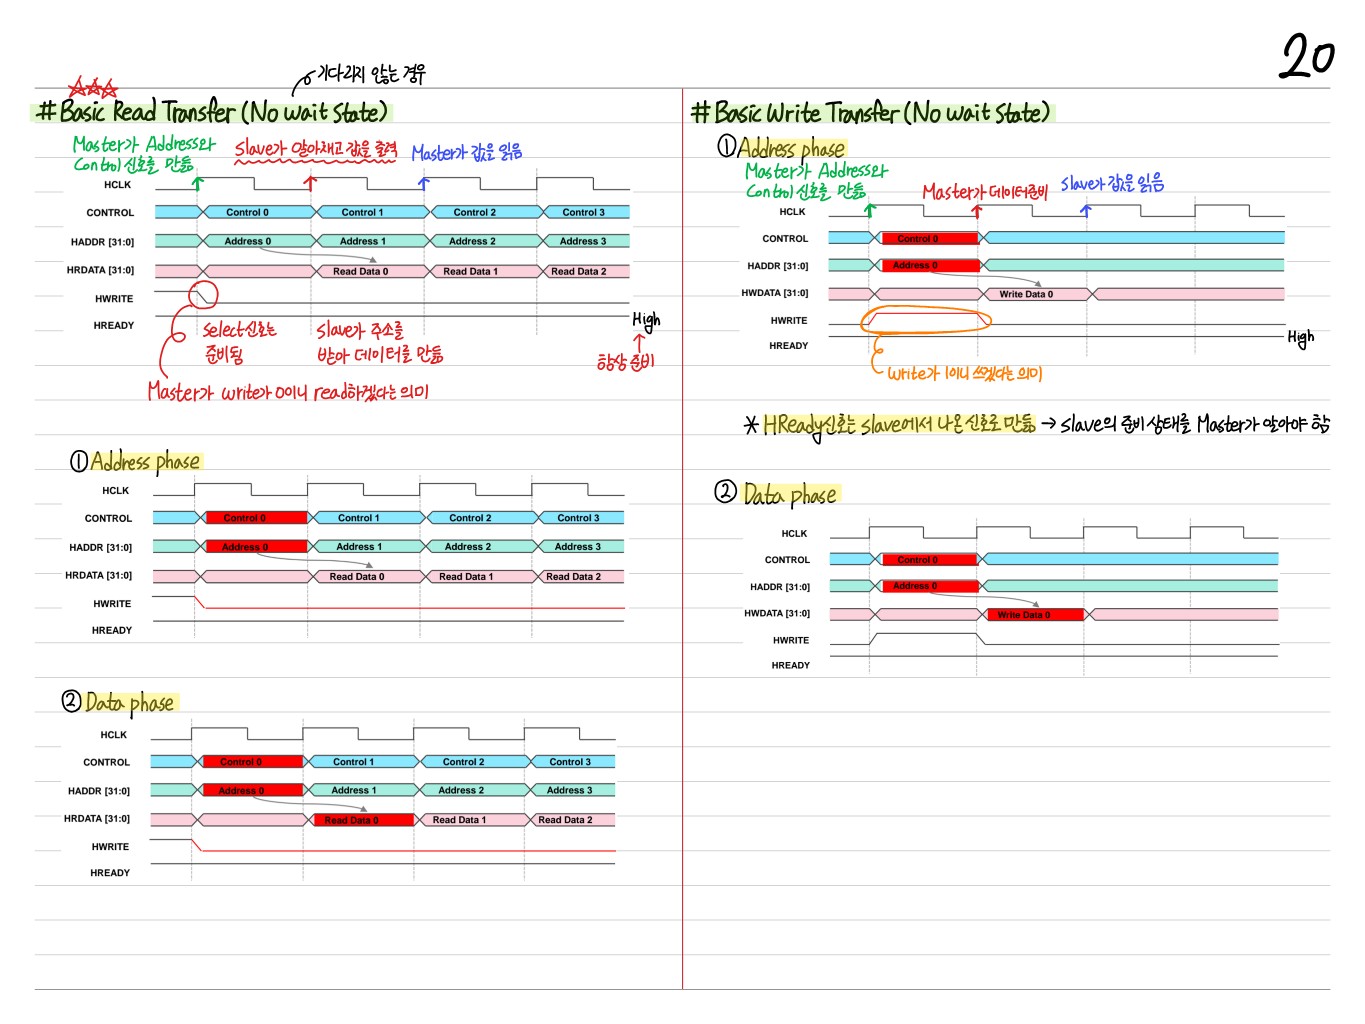 20
기다리지 않는 경우
# Basic Read Transfer (No wait State)
Master가 Address와
Control 신호를 만듦
Slave가 알아채고 값을 출력
Master가 값을 읽음
HCLK
CONTROL
Control 0 Control 1 Control 2 Control 3
HADDR [31:0]
Address 0 Address 1 Address 2 Address 3
HRDATA [31:0]
Read Data 0 Read Data 1 Read Data 2
HWRITE
HREADY
High
select신호는
준비됨
Slave가 주소를
받아 데이터를 만듦
항상 준비
Master가 write가 0이니 read하겠다는 의미
① Address phase
HCLK
CONTROL
Control 0 Control 1 Control 2 Control 3
HADDR [31:0]
Address 0 Address 1 Address 2 Address 3
HRDATA [31:0]
Read Data 0 Read Data 1 Read Data 2
HWRITE
HREADY
② Data phase
HCLK
CONTROL
Control 0 Control 1 Control 2 Control 3
HADDR [31:0]
Address 0 Address 1 Address 2 Address 3
HRDATA [31:0]
Read Data 0 Read Data 1 Read Data 2
HWRITE
HREADY
# Basic Write Transfer (No wait State)
① Address phase
Master가 Address와
Control 신호를 만듦
Master가 데이터준비
Slave가 값을 읽음
HCLK
CONTROL
Control 0
HADDR [31:0]
Address 0
HWDATA [31:0]
Write Data 0
HWRITE
HREADY
High
write가 1이니 쓰겠다는 의미
* HReady신호는 slave에서 나온 신호로 만듦 → slave의 준비 상태를 Master가 알아야 함
② Data phase
HCLK
CONTROL
Control 0
HADDR [31:0]
Address 0
HWDATA [31:0]
Write Data 0
HWRITE
HREADY